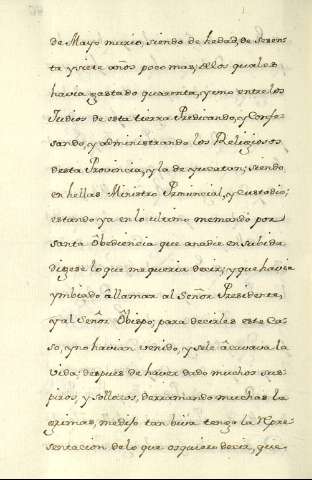 de Mayo murio, siendo de hedad, de setenta
ta y siete años poco mas; delos quales
havia gastado quarenta, y uno entre los
Judios de esta tierra Predicando, y Confe-
sando, y administrando los Religiosos
desta Provincia, y la de yucatan; siendo
en hellas Ministro Provincial, y Custodio;
estando ya en lo ultimo memando por
santa Obediencia que anadie en su bida
digese lo que me queria decir; y que havia
ymbiado államar al Señor Presidente,
y al Señor Obispo; para decirles este Ca-
so, y no havian venido, y sele ácavava la
vida: despues de haver dado muchos sus-
piros, y sollocos, derramando muchas la
grimas, medijo tan biva tengo la Repre-
sentacion delo que os quiero decir, que